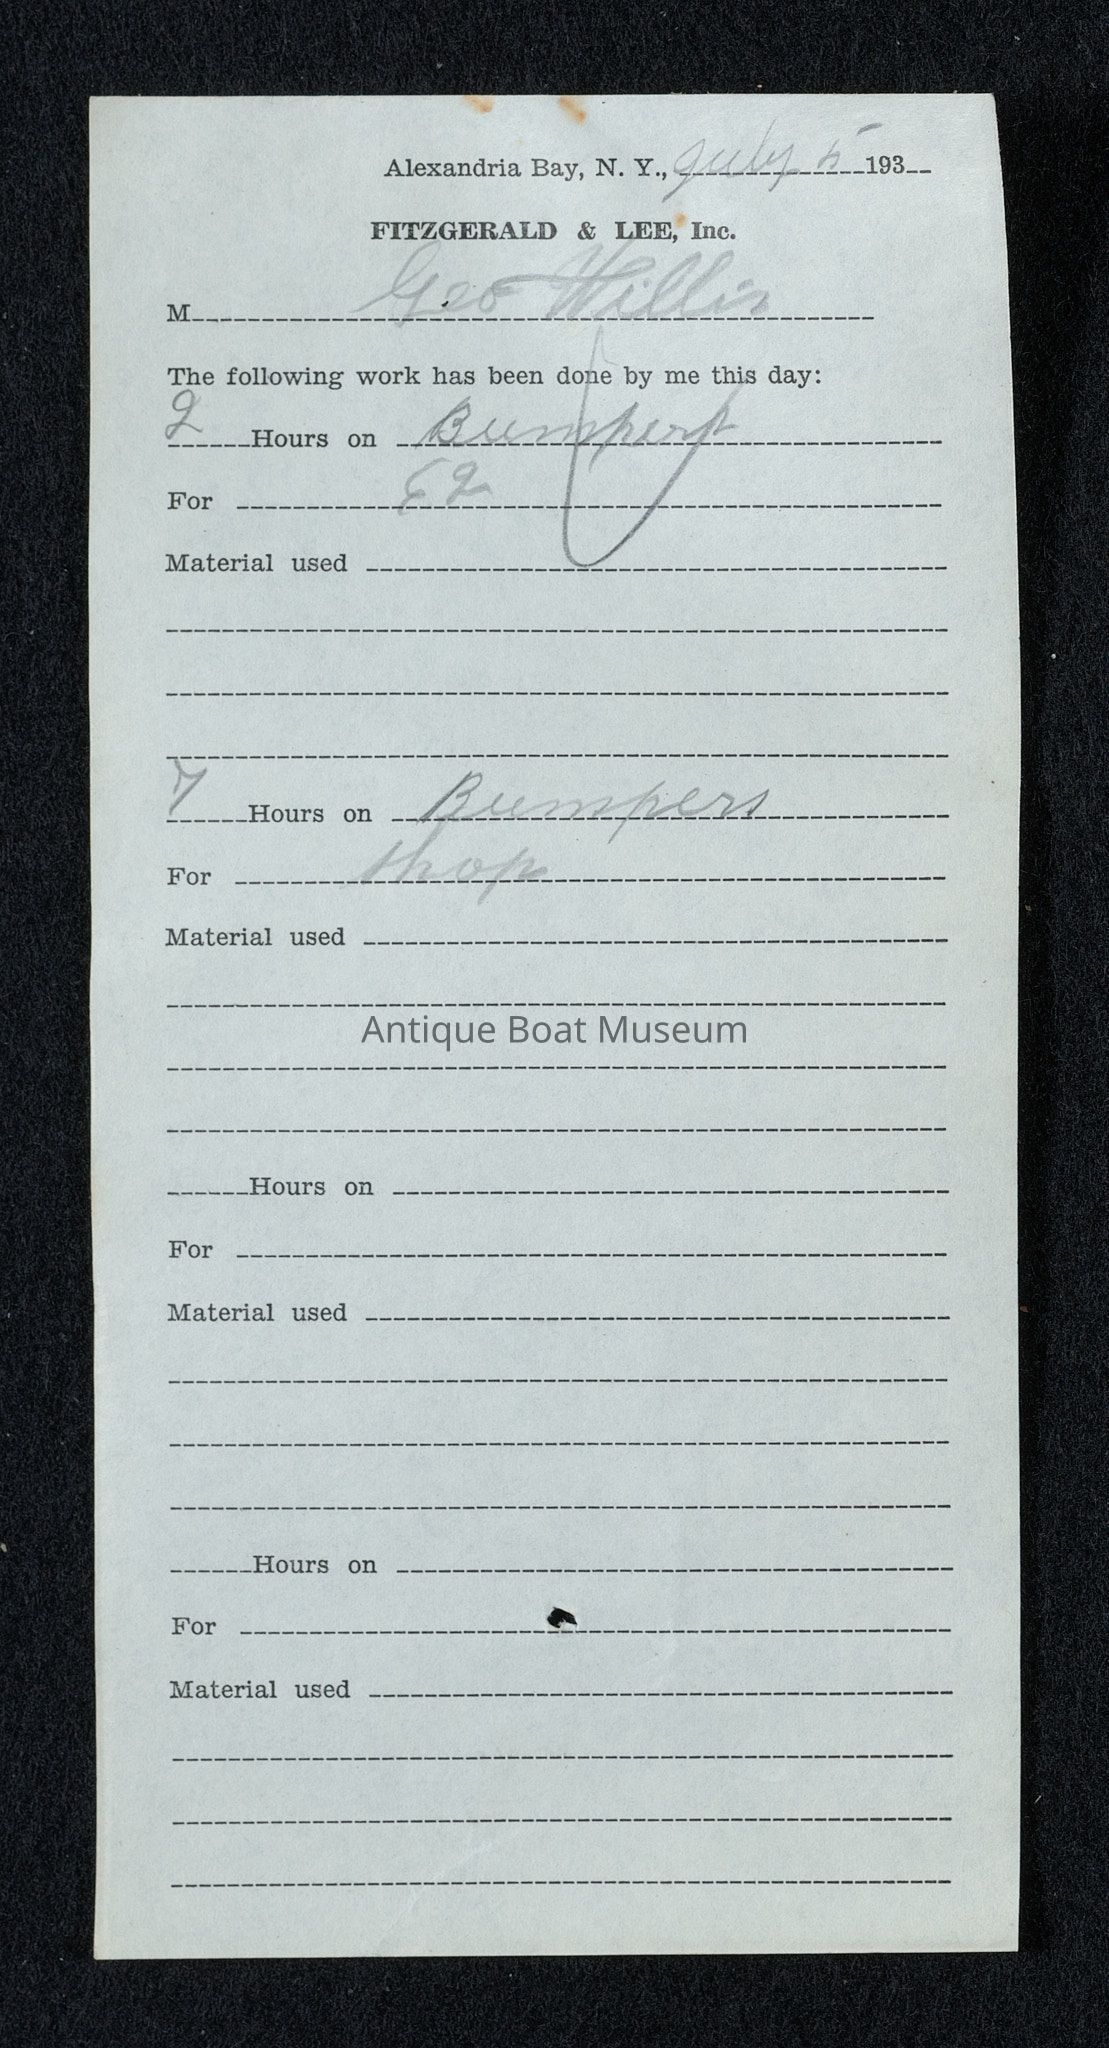 Alexandria Bay, N. Y., July 5 193
FITZGERALD & LEE, Inc.
M Geo Willis
The following work has been done by me this day:
2 Hours on Bumpers
For 62
Material used
7 Hours on Bumpers
For shop
Material used
Antique Boat Museum
Hours on
For
Material used
Hours on
For
Material used